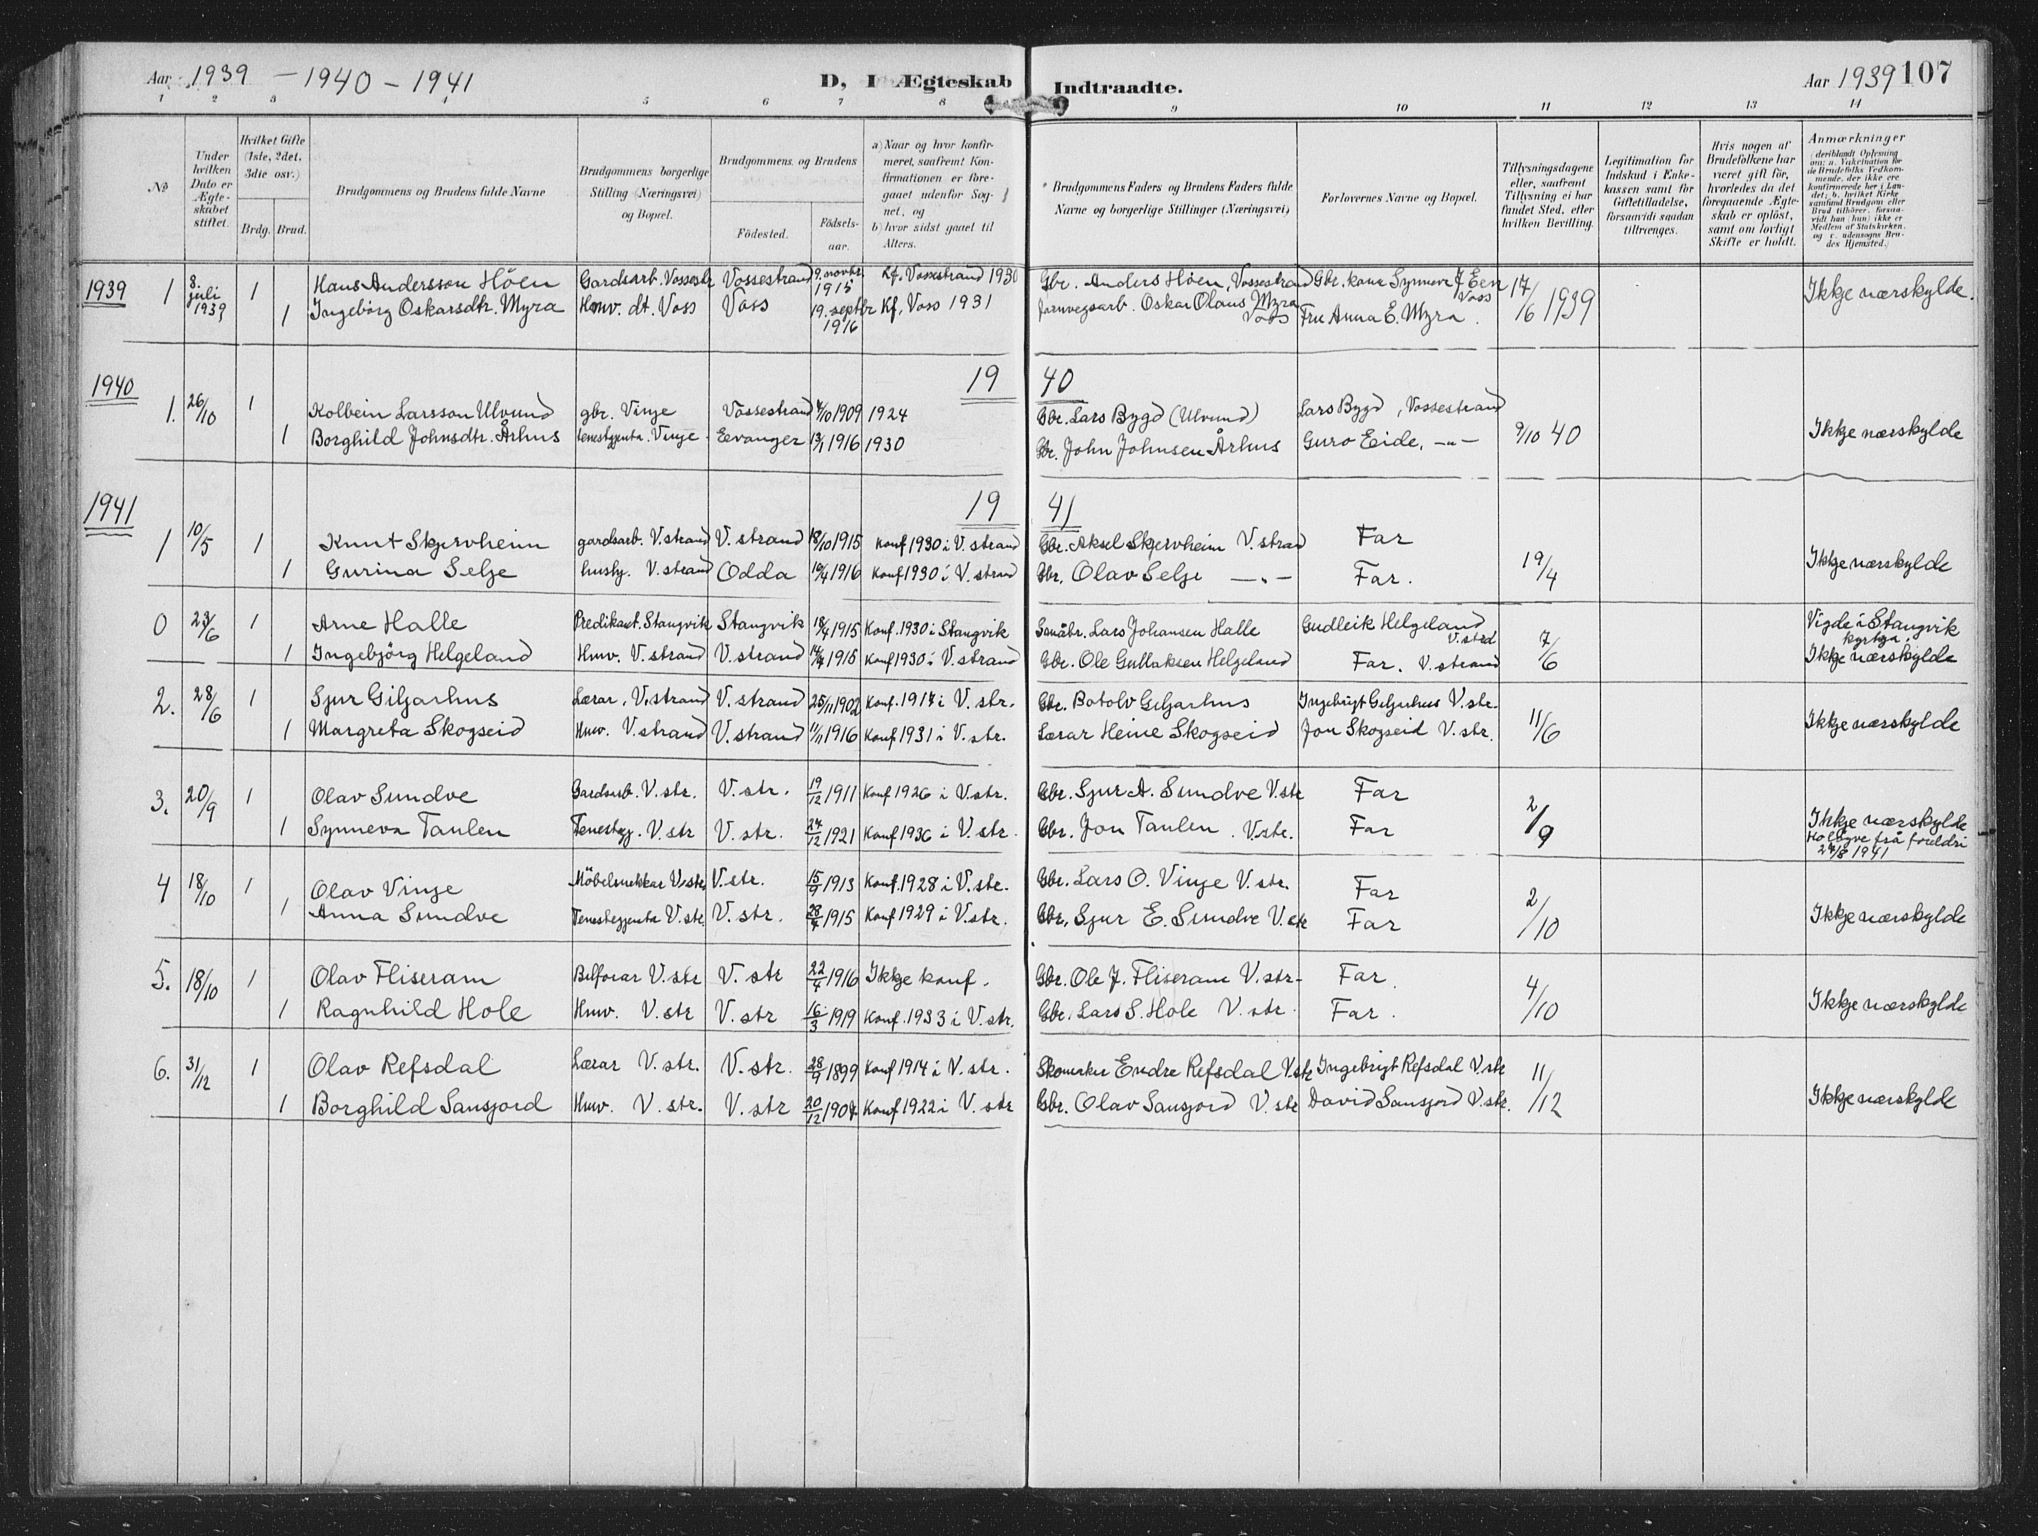 Aar 1939 – 1940 – 1941 D, I Ægteskab Indtraadte. Aar 1939 107
1 2 3 4 5 6 7 8 9 10 11 12 13 14
No
Under hvilken Dato er Ægteskabet stiftet.
Hvilket Gifte (1ste, 2det, 3die osv.)
Brdg. Brud.
Brudgommens og Brudens fulde Navne
Brudgommens borgerlige Stilling (Næringsvei) og Bopæl.
Brudgommens og Brudens
Fødested.
Fødselsaar.
a) Naar og hvor konfirmeret, saafremt Konfirmationen er foregaaet udenfor Sognet, og
b) hvor sidst gaaet til Alters.
Brudgommens Faders og Brudens Faders fulde Navne og borgerlige Stillinger (Næringsvei)
Forlovernes Navne og Bopæl.
Tillysningsdagene eller, saafremt Tillysning ei har fundet Sted, efter hvilken Bevilling.
Legitimation for Indskud i Enkekassen samt for Giftetilladelse, forsaavidt saadan tiltrænges.
Hvis nogen af Brudefolkene har været gift før, hvorledes da det foregaaende Ægteskab er opløst, samt om lovligt Skifte er holdt.
Anmærkninger
(deriblandt Oplysning om: a. Vakcination for de Brudefolks Vedkommende, der ikke ere konfirmerede her i Landet; b. hvilket Kirkesamfund Brudgom eller Brud tilhører, forsaavidt han (hun) ikke er Medlem af Statskirken, og c. udensogns Brudes Hjemsted.)
1939 1 8. juli 1939 1 Hans Andersson Höen Gardsarb. Vossestr Vossestrand 9. novbr. 1915 Kf. Vossestrand 1930 Gbr. Anders Höen, Vossestrand Gbr. kone Synneve J. Een Voss 17/6 1939 Ikkje nærskylde.
1 Ingebörg Oskarsdtr. Myra Hmv. dt. Voss Voss 19. septbr 1916 Kf. Voss 1931 Jarnvegsarb. Oskar Olaus Myra Voss Fru Anna E. Myra.
1940 19 40
1. 26/10 1 Kolbein Larsson Ulvund gbr. Vinje Vossestrand 4/10 1909 1924 Gbr. Lars Bygd (Ulvund) Lars Bygd, Vossestrand 9/10 40 Ikkje nærskylde
1 Borghild Johnsdtr. Århus tenestgjenta. Vinje. Evanger 13/1 1916 1930 Gbr. John Johnsen Århus Guro Eide, –"–
1941 19 41
1 10/5 1 Knut Skjervheim gardsarb. V. strand V. strand 18/10 1915 Konf 1930 i V. strand Gbr. Aksel Skjervheim V. strand Far 19/4 Ikkje nærskylde
1 Gurina Selje hushj. V. strand Odda 19/4 1916 Konf 1930 i V. strand Gbr. Olav Selje –"– Far.
0 23/6 1 Arne Halle Predikant. Stangvik Stangvik 18/4 1915 Konf. 1930 i Stangvik Småbr. Lars Johansen Halle Gudleik Helgeland V. strd 7/6 Vigde i Stangvik kyrkja.
1 Ingebjörg Helgeland Hmv. V. strand V. strand 14/7 1915 Konf 1930 i V. strand Gbr. Ole Gullaksen Helgeland Far. V. strand Ikkje nærskylde
2. 28/6 1 Sjur Giljarhus Lærar, V. strand V. strand 25/11 1902 Konf. 1917 i V. str. Gbr. Botolv Giljarhus Ingebrigt Giljarhus V. str. 11/6 Ikkje nærskylde
1 Margreta Skogseid Hmv. V. strand V. strand 11/11 1916 Konf 1931 i V. str. Lærar Heine Skogseid Jon Skogseid V. str.
3. 20/9 1 Olav Sundve Gardsarb. V. str. V. str. 19/12 1911 Konf 1926 i V. str. Gbr. Sjur A. Sundve V. str Far 2/9 Ikkje nærskylde
1 Synneva Taulen Tenestgj. V. str V. str. 24/12 1921 Konf 1936 i V. str. Gbr. Jon Taulen. V. str. Far løyve frå foreldri 27/8 1941
4 18/10 1 Olav Vinje Möbelsnekkar V. str. V. str. 15/9 1913 Konf. 1928 i V. str. Gbr. Lars O. Vinje V. str. Far 2/10 Ikkje nærskylde
1 Anna Sundve Tenestgjenta V. str. V. str. 23/4 1915 Konf. 1929 i V. str. Gbr. Sjur E. Sundve V. str Far
5. 18/10 1 Olav Fliseram Bilförar V. str V. str 22/4 1916 Ikkje konf. Gbr. Ole J. Fliseram V. str. Far. 4/10 Ikkje nærskylde
1 Ragnhild Hole Hmv. V. str V. str 16/3 1919 Konf. 1933 i V. str. Gbr. Lars S. Hole V. str. Far.
6. 31/12 1 Olav Refsdal Lærar V. str. V. str. 28/9 1899 Konf 1914 i V. str. Skomaker Endre Refsdal V. str Ingebrigt Refsdal V. str 11/12 Ikkje nærskylde
1 Borghild Sansjord Hmv. V. str. V. str 20/12 1907 Konf 1922 i V. str Gbr. Olav Sansjord V. str David Sansjord V. str.